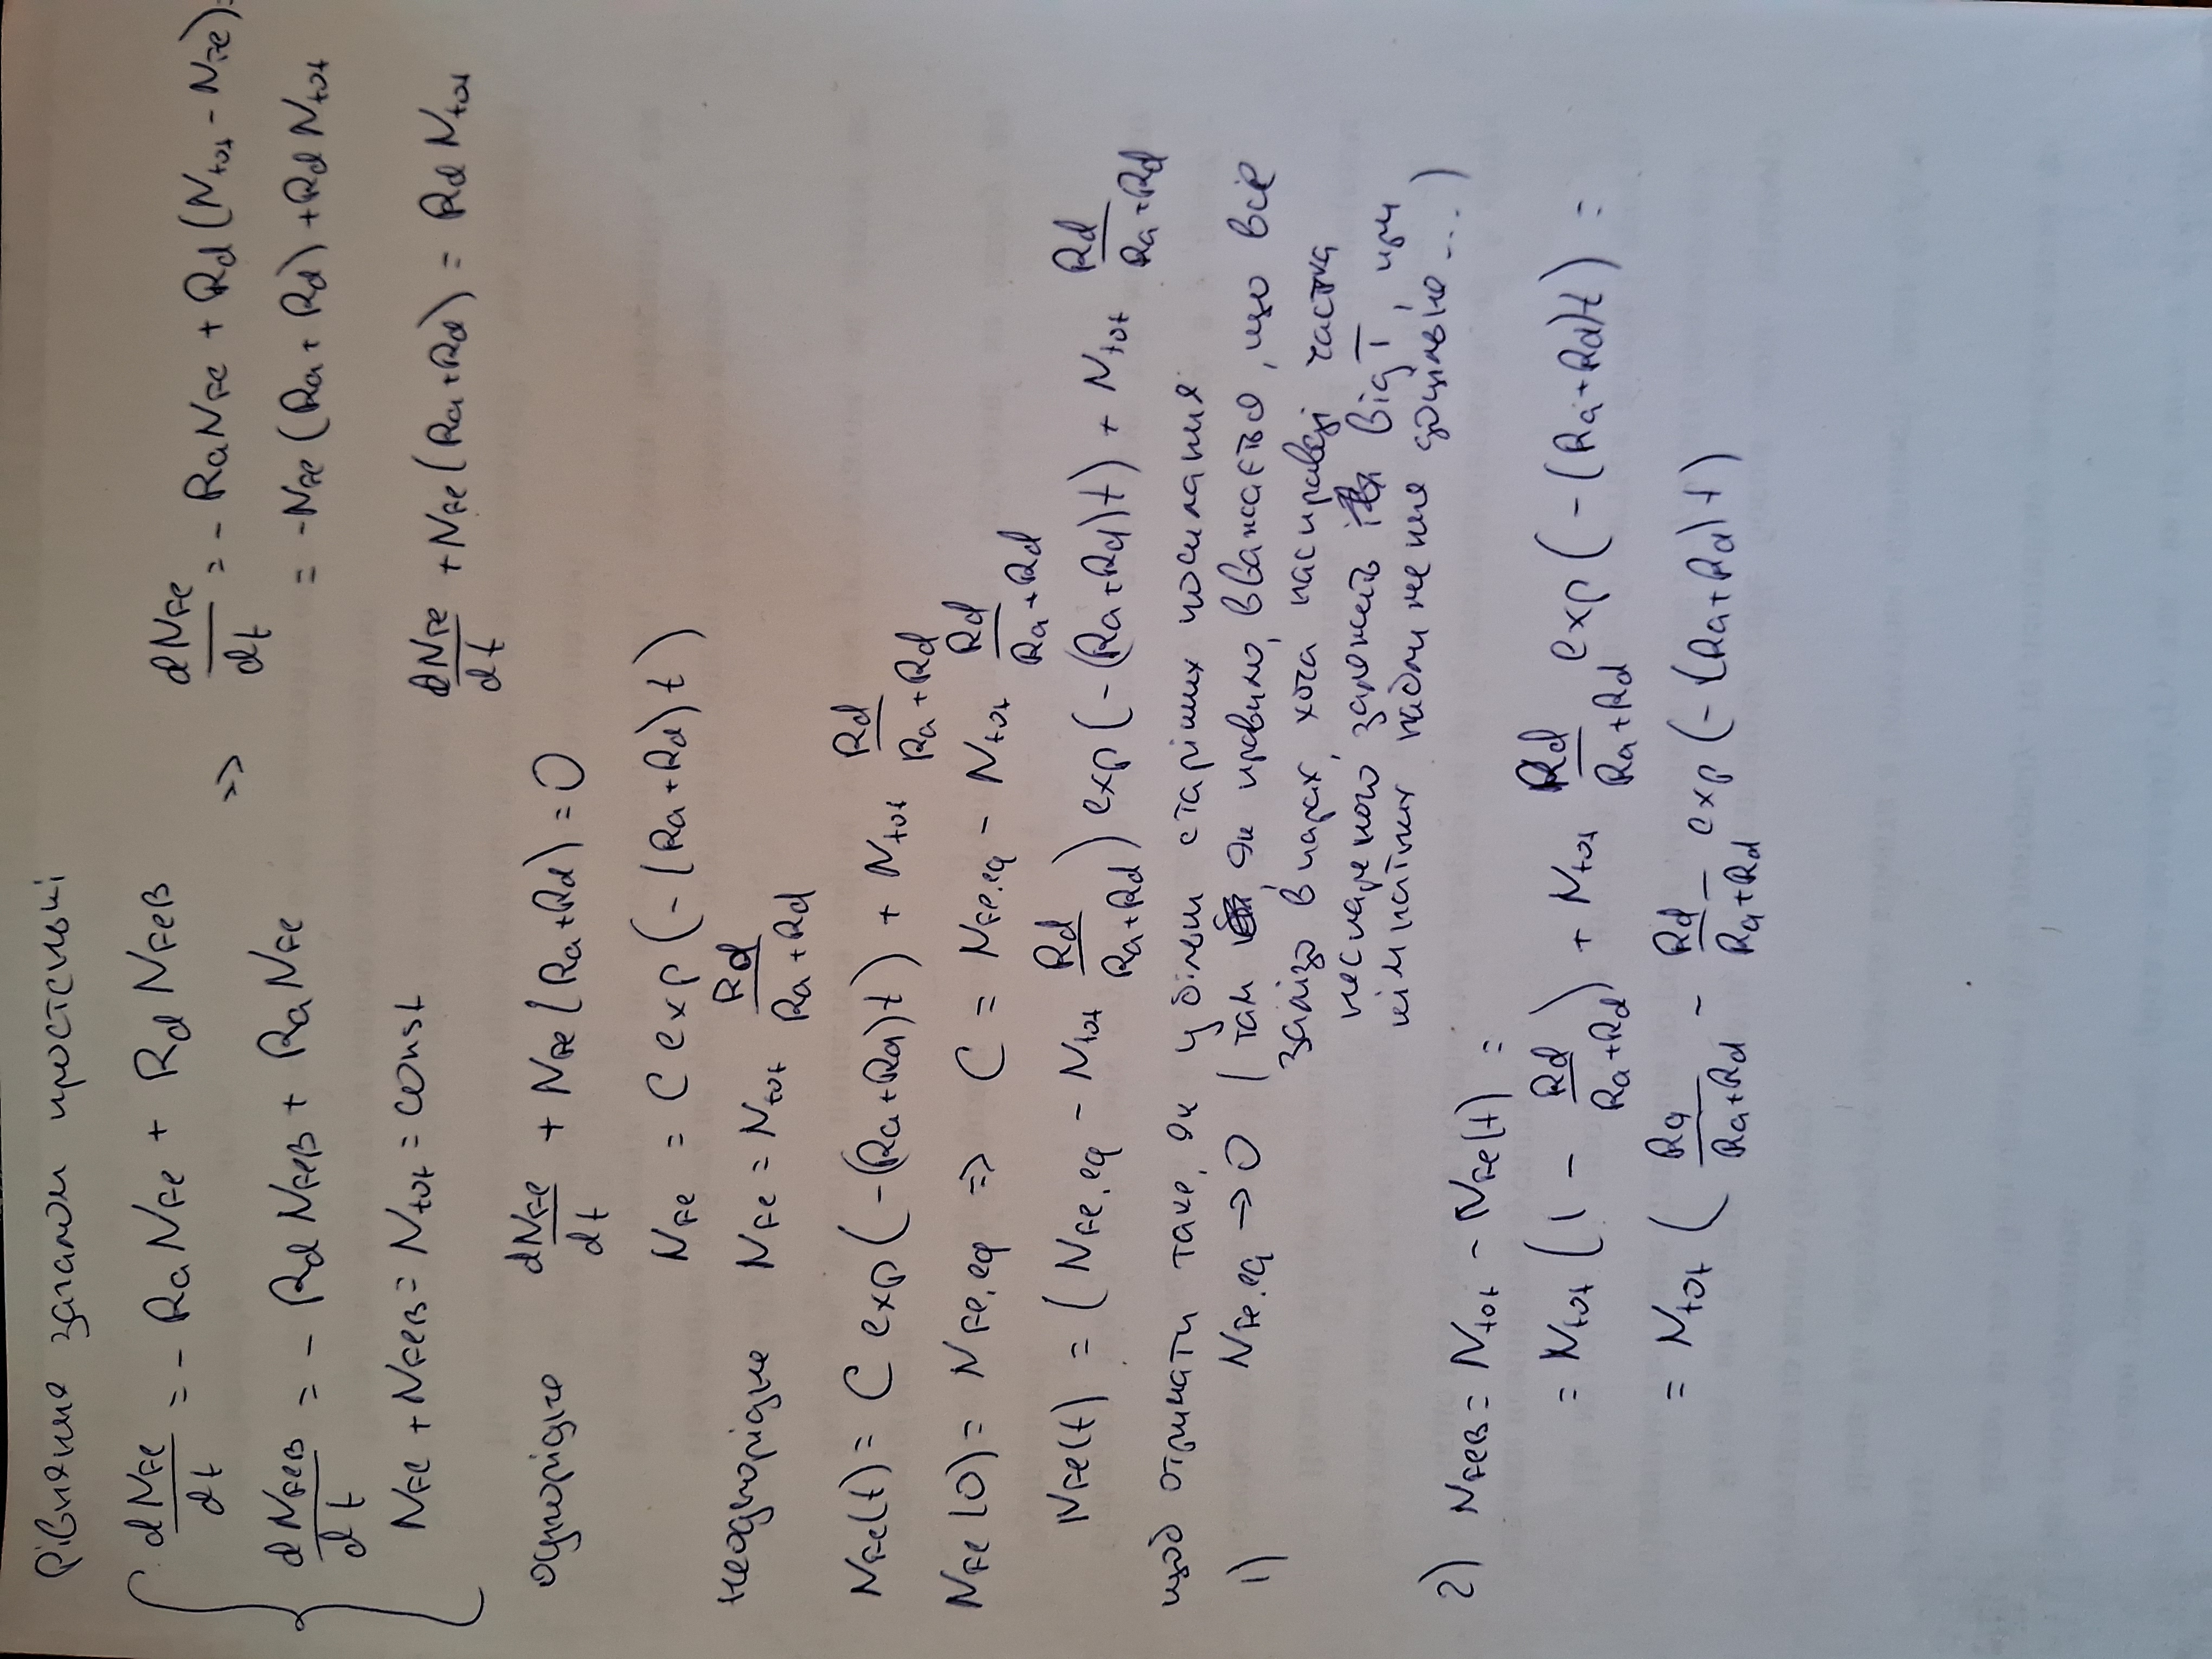 Рівняння загалом простенькі
dN_Fe/dt = - R_a N_Fe + R_d N_FeB
dN_FeB/dt = - R_d N_FeB + R_a N_Fe
N_Fe + N_FeB = N_tot = const
=> dN_Fe/dt = - R_a N_Fe + R_d (N_tot - N_Fe) =
= -N_Fe (R_a + R_d) + R_d N_tot
dN_Fe/dt + N_Fe (R_a + R_d) = R_d N_tot
однорідне dN_Fe/dt + N_Fe (R_a + R_d) = 0
N_Fe = C exp(-(R_a + R_d) t)
неоднорідне N_Fe = N_tot R_d/(R_a + R_d)
N_Fe(t) = C exp(-(R_a + R_d) t) + N_tot R_d/(R_a + R_d)
N_Fe(0) = N_Fe,eq => C = N_Fe,eq - N_tot R_d/(R_a + R_d)
N_Fe(t) = (N_Fe,eq - N_tot R_d/(R_a + R_d)) exp(-(R_a + R_d) t) + N_tot R_d/(R_a + R_d)
щоб отримати таке, як у більш старіших посилання
1) N_Fe,eq → 0 (там, як правило, вважається, що все
залізо в парах, хоча насправді частка
неспареного залежить від T, при
кімнатних наближення доцільне ...)
2) N_FeB = N_tot - N_Fe(t) =
= N_tot (1 - R_d/(R_a + R_d)) + N_tot R_d/(R_a + R_d) exp(-(R_a + R_d) t) =
= N_tot (R_a/(R_a + R_d) - R_d/(R_a + R_d) exp(-(R_a + R_d) t)